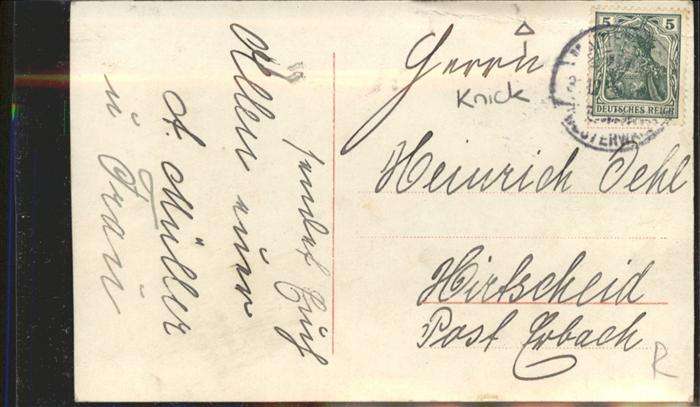 sendet Euch
Allen eure
A. Müller
u Frau
Herrn
Knick
Heinrich Oehl
Hirtscheid
Post Erbach
R
5 5
DEUTSCHES REICH
WESTERWALD